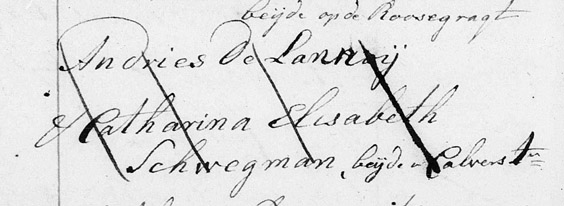 beijde op de Roosegragt
Andries De Lannoij
& Catharina Elisabeth
Schwegman, beijde